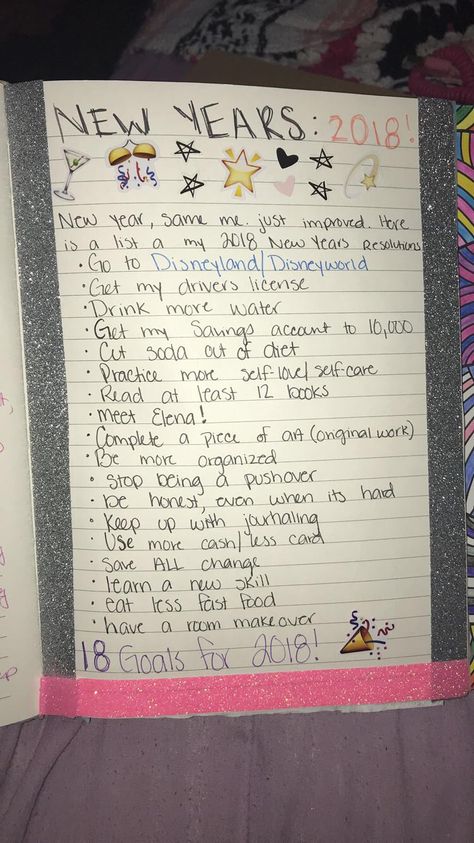 NEW YEARS: 2018!
New year, same me. just improved. Here
is a list a my 2018 New Years Resolutions
• Go to Disneyland/Disneyworld
• Get my drivers license
• Drink more water
• Get my Savings account to 10,000
• Cut soda out of diet
• Practice more self-love/self-care
• Read at least 12 books
• Meet Elena!
• Complete a piece of art (original work)
• Be more organized
• Stop being a pushover
• be honest, even when its hard
• Keep up with journaling
• Use more cash/less card
• Save ALL change
• learn a new skill
• eat less fast food
• have a room makeover
18 Goals for 2018!